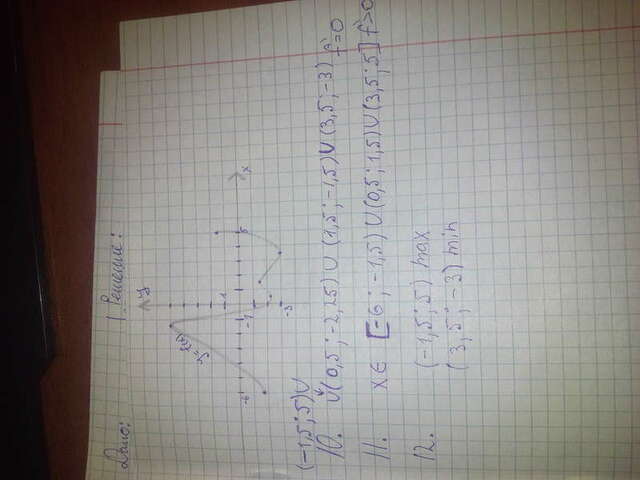 Дано:
Решение:
y
x
5
1
-1
-3
5
-6
(-1,5; 5) ∪
10. ∪ (0,5; -2,25) ∪ (1,5; -1,5) ∪ (3,5; -3) f'=0
11. x ∈ [-6; -1,5) ∪ (0,5; 1,5) ∪ (3,5; 5] f'>0
12. (-1,5; 5) max
(3,5; -3) min